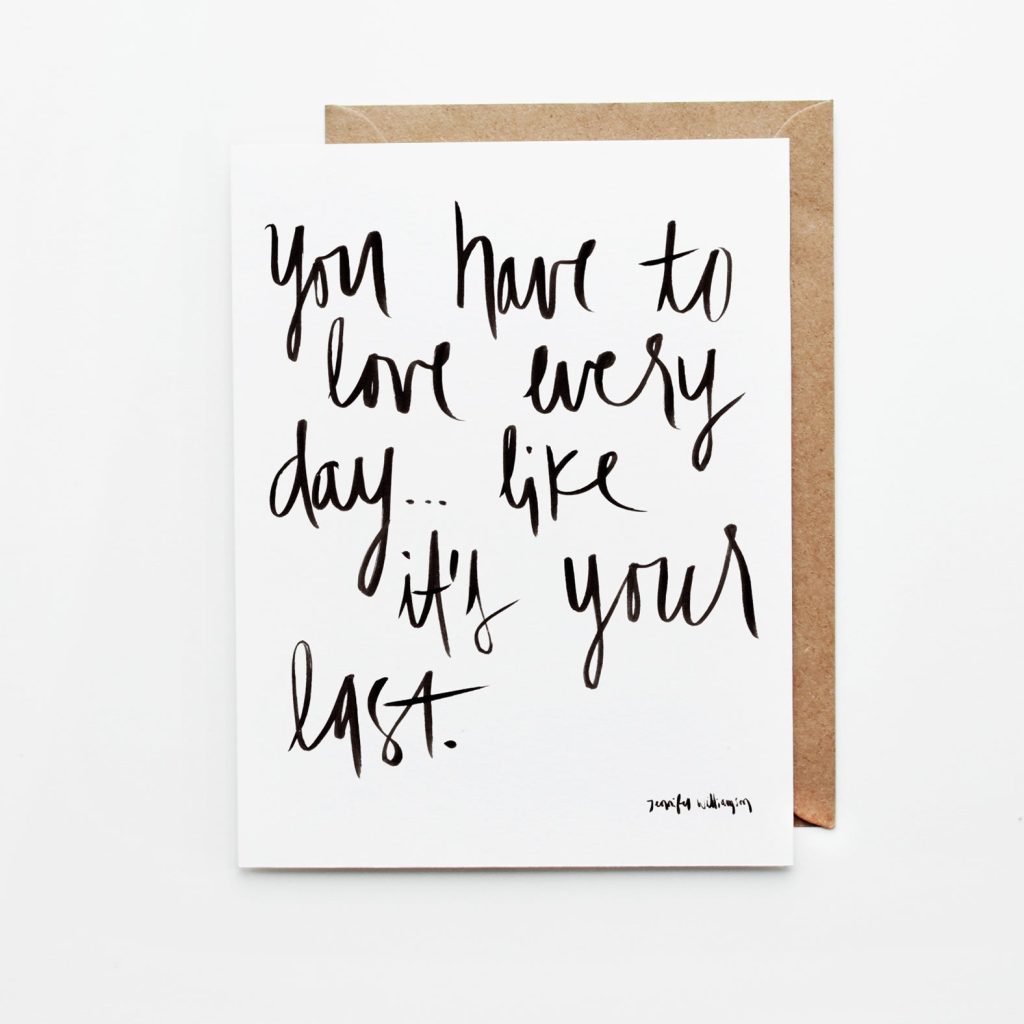 you have to
love every
day... like
it's your
last.
Jennifer Williamson